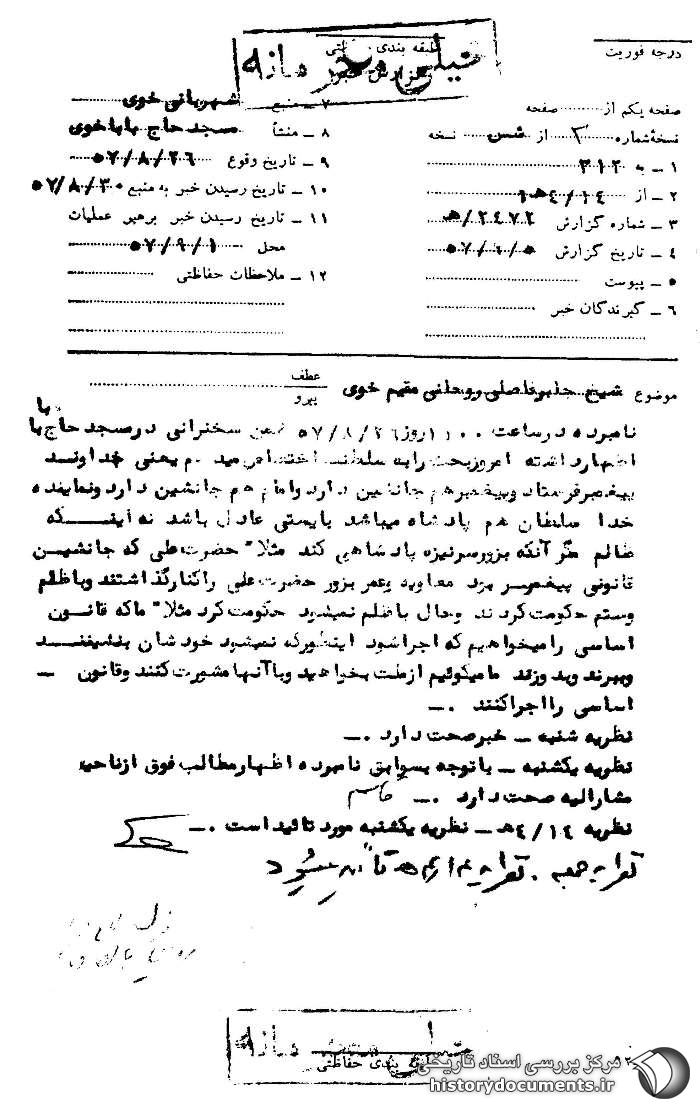 طبقه بندی حفاظتی
خیلی محرمانه
گزارش خبر
درجه فوریت
صفحه یکم از صفحه
نسخهٔ شماره ۳ از شش نسخه
۱ ــ به ۳۱۲
۲ ــ از ۴/۱۴ ه‍
۳ ــ شماره گزارش ۲۴۷۲/ه‍
۴ ــ تاریخ گزارش
۵ ــ پیوست
۶ ــ گیرندگان خبر
۷ ــ منبع شهربانی خوی
۸ ــ منشأ مسجد حاج بابا خوی
۹ ــ تاریخ وقوع ۵۷/۸/۲۶
۱۰ ــ تاریخ رسیدن خبر به منبع ۵۷/۸/۳۰
۱۱ ــ تاریخ رسیدن خبر برهبر عملیات
محل ۵۷/۹/۱
۱۲ ــ ملاحظات حفاظتی
موضوع شیخ جابر فاضلی روحانی مقیم خوی
عطف
پیرو
نامبرده در ساعت روز ۵۷/۸/۲۶ ضمن سخنرانی در مسجد حاج بابا
اظهار داشته امروز بحث را به سلطنت اختصاص میدهم یعنی خداوند
پیغمبر فرستاد و پیغمبر هم جانشین دارد و امام هم جانشین دارد و نماینده
خدا سلطان هم پادشاه میباشد بایستی عادل باشد نه اینکه
ظالم هر آنکه بزور سرنیزه پادشاهی کند مثلا" حضرت علی که جانشین
قانونی پیغمبر بود معاویه و عمر بزور حضرت علی را کنار گذاشتند و با ظلم
و ستم حکومت کردند و حال با ظلم نمیشود حکومت کرد مثلا" ما که قانون
اساسی را میخواهیم که اجرا شود اینطور که نمیشود خودشان بنشینند
و ببرند و بدوزند ما میگوئیم از ملت بخواهید و با آنها مشورت کنند و قانون ــ
اساسی را اجرا کنند .ــ
نظریه شنبه ــ خبر صحت دارد .ــ
نظریه یکشنبه ــ با توجه بسوابق نامبرده اظهار مطالب فوق از ناحیه
مشارالیه صحت دارد .ــ
نظریه ۴/۱۴ ه‍ ــ نظریه یکشنبه مورد تائید است .ــ
خیلی محرمانه
طبقه بندی حفاظتی
مرکز بررسی اسناد تاریخی
historydocuments.ir